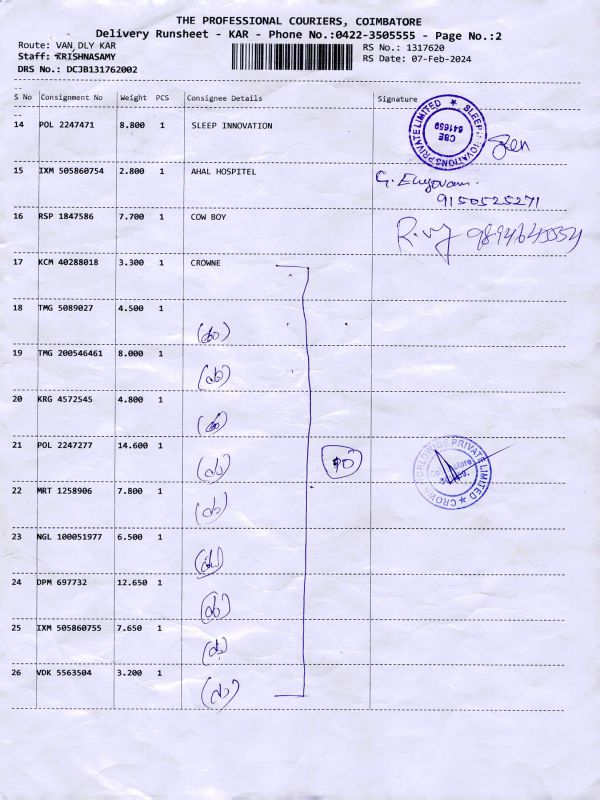 THE PROFESSIONAL COURIERS, COIMBATORE
Delivery Runsheet - KAR - Phone No.:0422-3505555 - Page No.:2
Route: VAN_DLY KAR RS No.: 1317620
Staff: KRISHNASAMY RS Date: 07-Feb-2024
DRS No.: DCJB131762002
S No Consignment No Weight PCS Consignee Details Signature
14 POL 2247471 8.800 1 SLEEP INNOVATION
SLEEP INNOVATIONS PRIVATE LIMITED ★
CBE
641659
15 IXM 505860754 2.800 1 AHAL HOSPITEL
9150525271
16 RSP 1847586 7.700 1 COW BOY
17 KCM 40288018 3.300 1 CROWNE
18 TMG 5089027 4.500 1
19 TMG 200546461 8.000 1
20 KRG 4572545 4.800 1
21 POL 2247277 14.600 1
WORLDWIDE PRIVATE LIMITED ★
22 MRT 1258906 7.800 1
23 NGL 100051977 6.500 1
24 DPM 697732 12.650 1
25 IXM 505860755 7.650 1
26 VDK 5563504 3.200 1